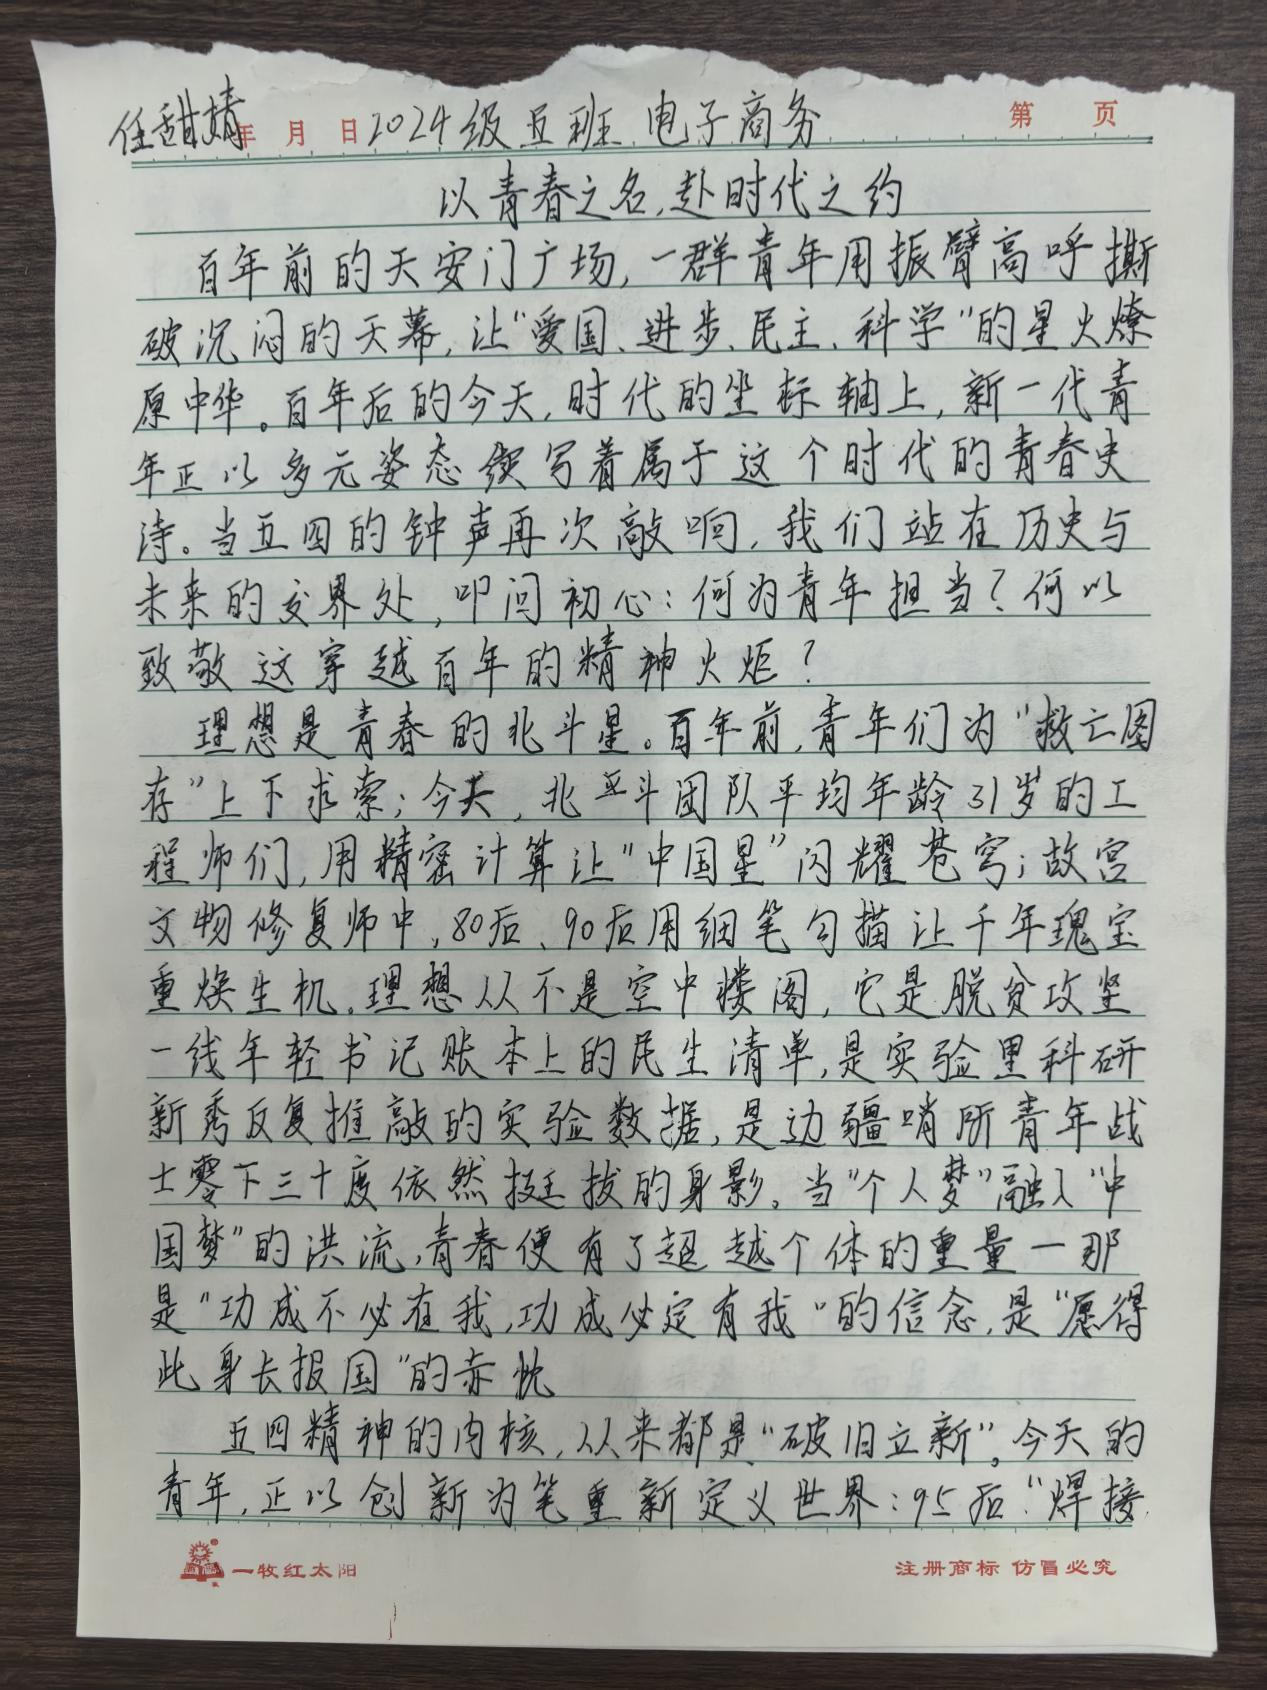 任甜婧 年 月 日 2024级五班 电子商务 第 页
以青春之名,赴时代之约
百年前的天安门广场,一群青年用振臂高呼撕
破沉闷的天幕,让“爱国、进步、民主、科学”的星火燎
原中华。百年后的今天,时代的坐标轴上,新一代青
年正以多元姿态续写着属于这个时代的青春史
诗。当五四的钟声再次敲响,我们站在历史与
未来的交界处,叩问初心:何为青年担当?何以
致敬这穿越百年的精神火炬?
理想是青春的北斗星。百年前,青年们为“救亡图
存”上下求索;今天,北斗团队平均年龄31岁的工
程师们,用精密计算让“中国星”闪耀苍穹;故宫
文物修复师中,80后、90后用细笔勾描让千年瑰宝
重焕生机。理想从不是空中楼阁,它是脱贫攻坚
一线年轻书记账本上的民生清单,是实验里科研
新秀反复推敲的实验数据,是边疆哨所青年战
士零下三十度依然挺拔的身影。当“个人梦”融入“中
国梦”的洪流,青春便有了超越个体的重量一那
是“功成不必在我,功成必定有我“的信念,是“愿得
此身长报国”的赤忱
五四精神的内核,从来都是“破旧立新”。今天的
青年,正以创新为笔重新定义世界:95后“焊接
一牧红太阳 注册商标 仿冒必究